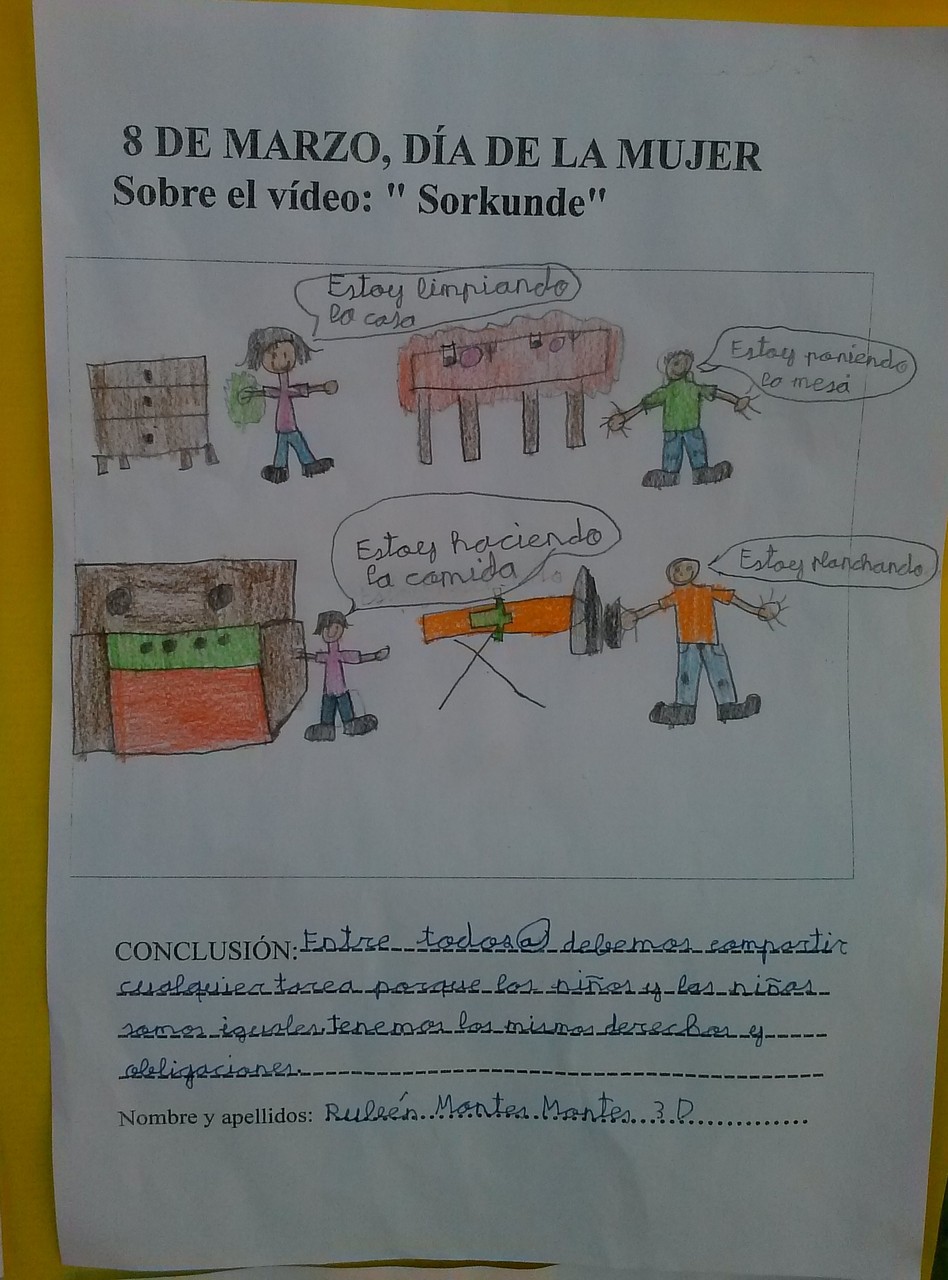 8 DE MARZO, DÍA DE LA MUJER
Sobre el vídeo: " Sorkunde"
Estoy limpiando
la casa
Estoy poniendo
la mesa
Estoy haciendo
la comida
Estoy planchando
CONCLUSIÓN: Entre todos@ debemos compartir
cualquier tarea porque los niños y las niñas
somos iguales, tenemos los mismos derechos y
obligaciones.
Nombre y apellidos: Rubén Montes Montes 3 D